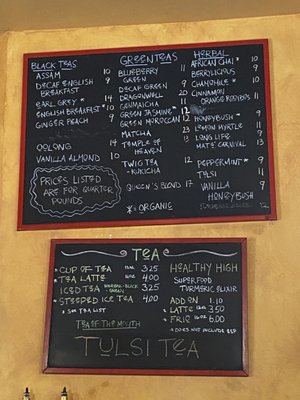 BLACK TEAS
ASSAM 10
DECAF ENGLISH BREAKFAST 9
EARL GREY * 14
ENGLISH BREAKFAST * 10
GINGER PEACH 9
OOLONG 14
VANILLA ALMOND 10
PRICES LISTED
ARE FOR QUARTER
POUNDS
GREEN TEAS
BLUEBERRY GREEN 11
DECAF GREEN
DRAGONWELL
GENMAICHA
GREEN JASMINE * 12
GREEN MOROCCAN 12
MATCHA
TEMPLE OF
HEAVEN
TWIG TEA
- KUKICHA
QUEEN'S BLEND 17
* = ORGANIC
HERBAL
AFRICAN CHAI * 10
BERRYLICIOUS 9
CHAMOMILE * 10
CINNAMON
ORANGE ROOIBOS 11
HONEYBUSH * 9
LEMON MYRTLE 9
LONG LIFE 9
MATE CARNIVAL 13
PEPPERMINT * 9
TULSI 11
VANILLA 9
HONEYBUSH
12
TEA
* CUP OF TEA 12oz 3.25
* TEA LATTE 12oz 4.00
ICED TEA HERBAL-BLACK-GREEN 3.25
* STEEPED ICE TEA 4.00
* SEE TEA LIST
TEA OF THE MOUTH
TULSI TEA
HEALTHY HIGH
SUPERFOOD
TURMERIC ELIXIR
ADD ON 1.10
* LATTE 12oz 3.50
* FRIC 16oz 6.00
* DOES NOT INCLUDE ESP